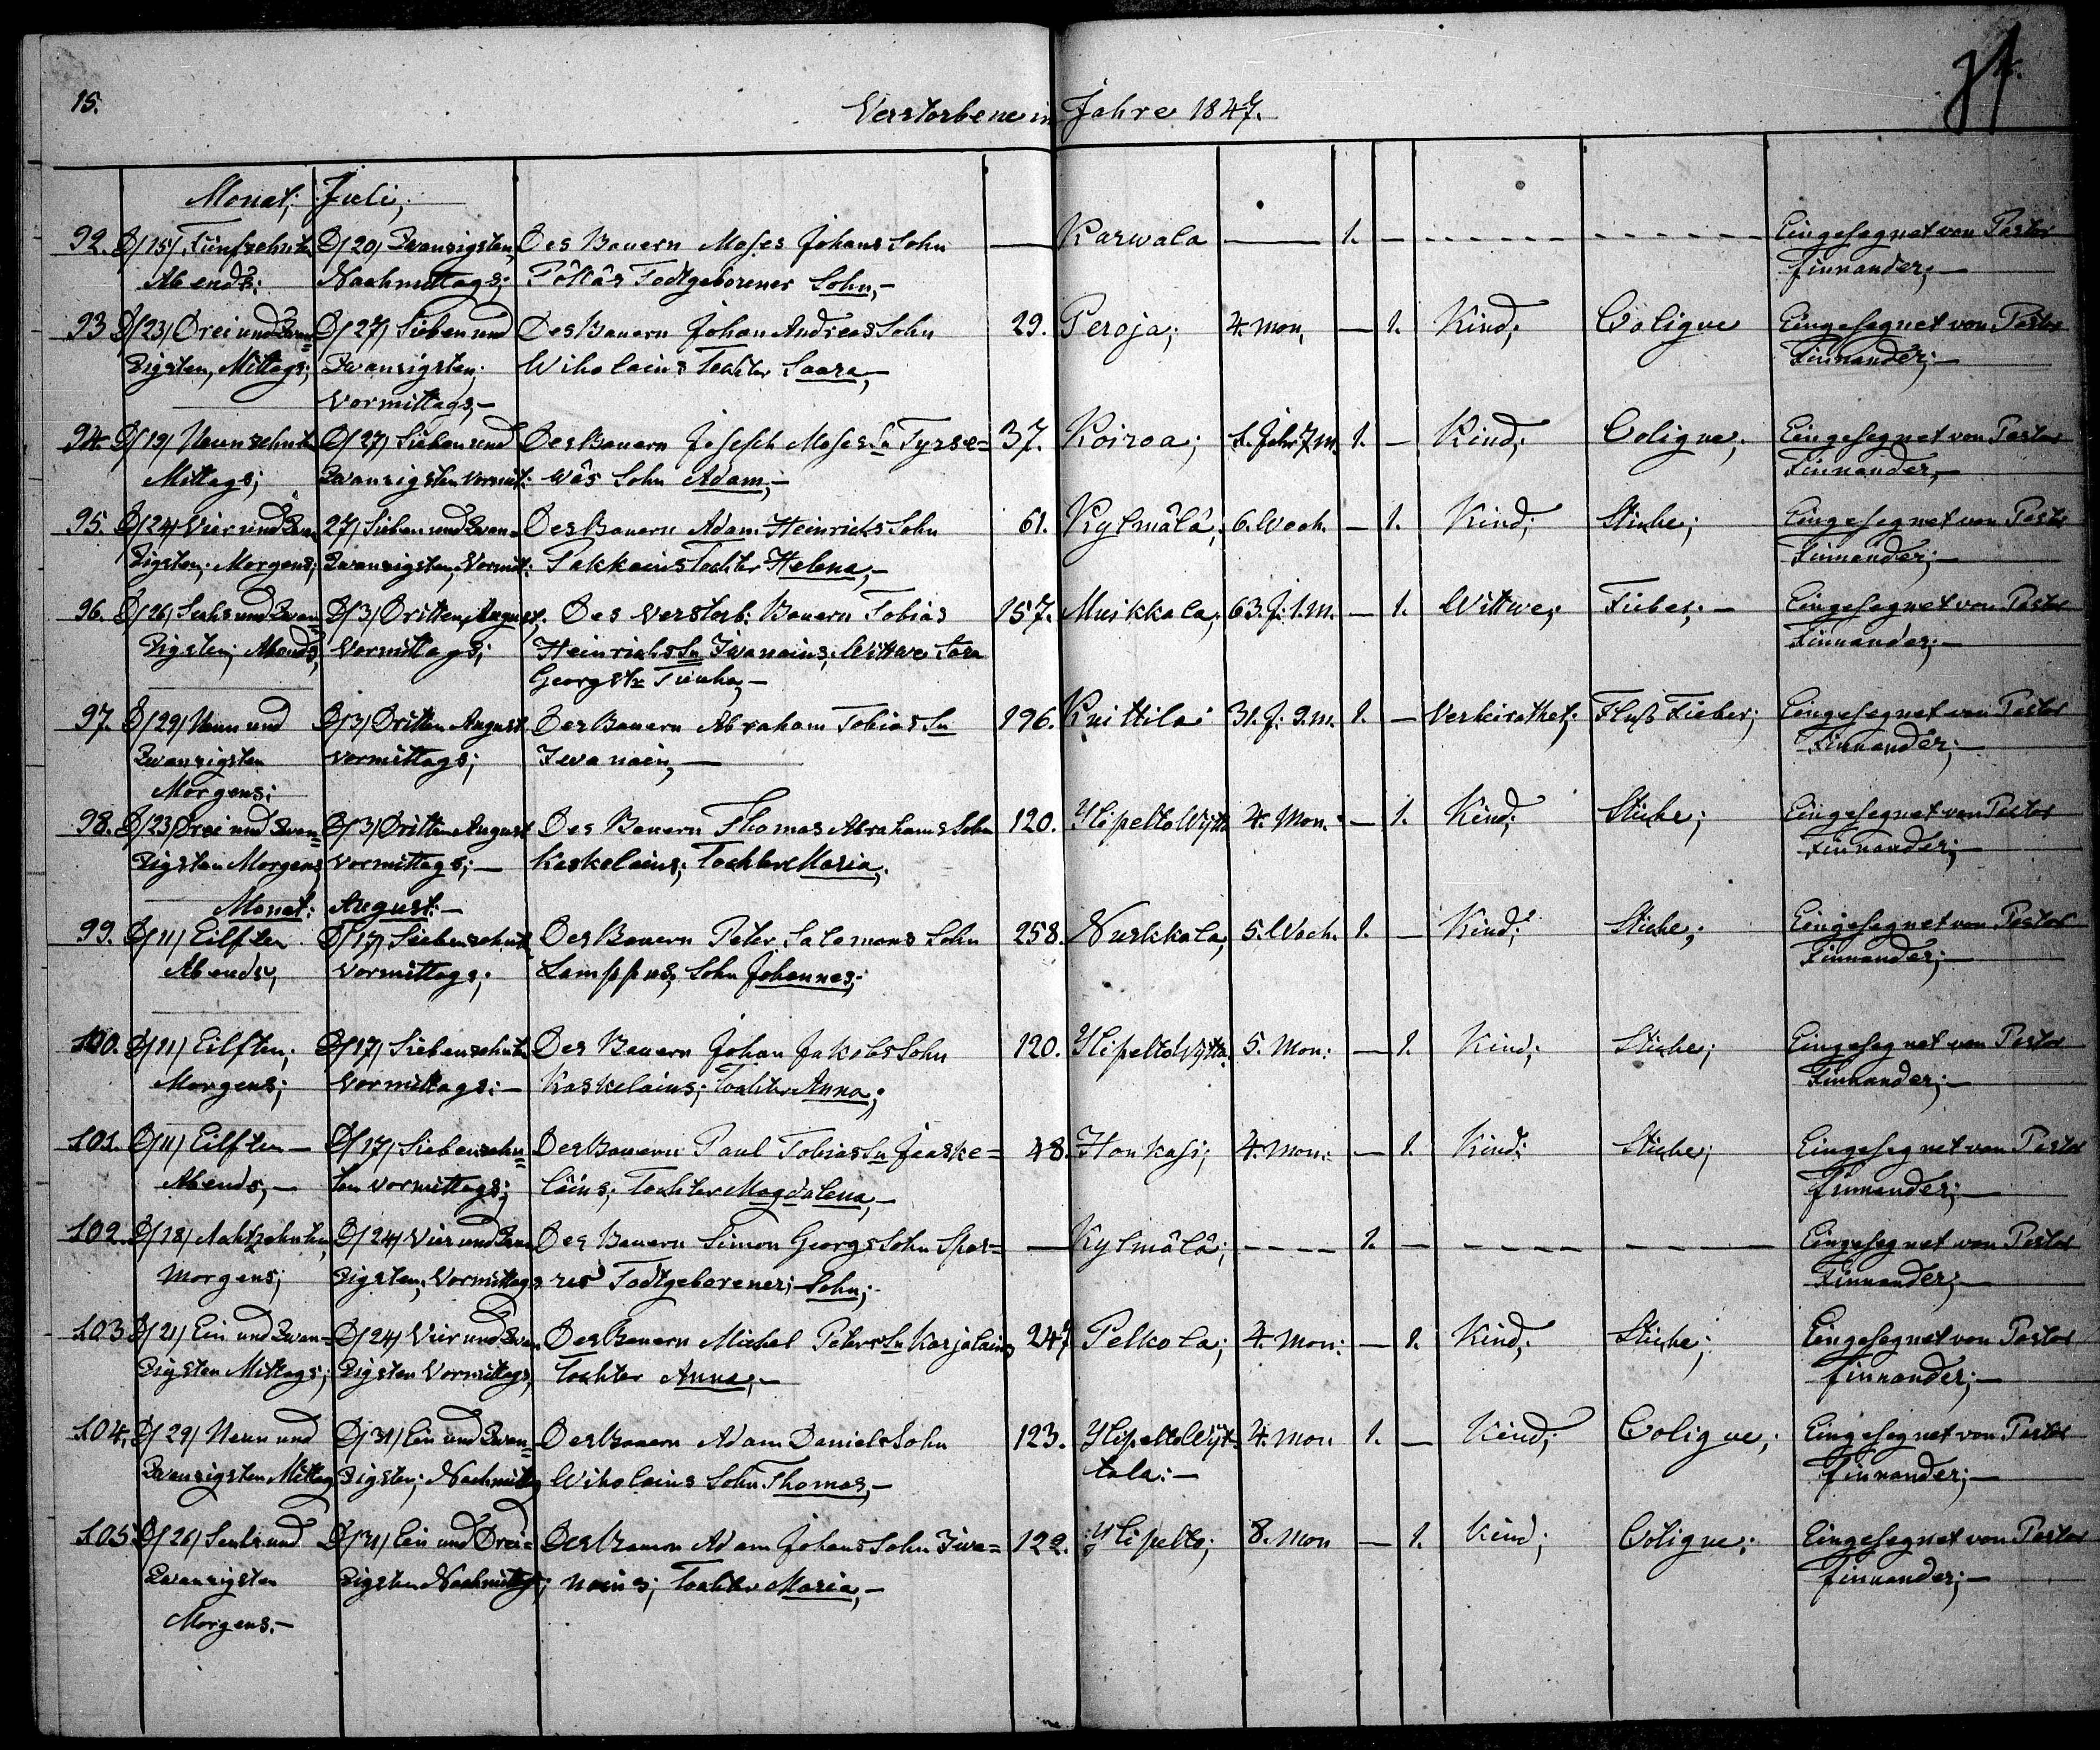 15.
Verstorbene in Jahre 1847.
Monat; Juli;
92. D/15/ Fünfzehnten D/20/ Zwanzigsten, Des Bauern Moses Johans Sohn — Karwala — 1. — Eingesegnet von Pastor
Abends; Nachmittags; Todtgeborener Sohn,— Finnander;—
93 D/23/ Drei und Zwan= D/27/ Sieben und Des Bauern Johan Andreas Sohn 29. Peroja; 4. Mon, — 1. Kind; Coligue Eingesegnet von Pastor
zigsten, Mittags; Zwanzigsten; Wiholains Tochter Saara,— Finnander;—
Vormittags,—
94. D/19/ Neunzehnten D/27/ Sieben und Des Bauern Joseph Moses Sn Tyrse= 37. Koiroa; 1. Jahr 7 m. 1. — Kind; Coligue; Eingesegnet von Pastor
Mittags; Zwanzigsten Vormit: wäs Sohn Adam,— Finnander,—
95. D/24/ Vier und Zwan 27/ Sieben und Zwan= Des Bauern Adam Heinrichs Sohn 61. Kylmälä; 6. Woch. — 1. Kind; Stiche; Eingesegnet von Pastor
zigsten; Morgens; Zwanzigsten, Vormit: Pakkains Tochter Helena,— Finnander;—
96. D/26/ Sechs und Zwan D/3/ Dritten, August. Des Verstorb: Bauern Tobias 157. Muikkala; 63. J: 1. m. — 1. Wittwe; Fieber;— Eingesegnet von Pastor
zigsten; Abends, Vormittags; Heinrichs Sn Iwanains; Wittwe Sara Finnander;—
Georgstr —
97. D/29/ Neun und D/3/ Dritten August Der Bauern Abraham Tobias Sn 196. Knittilä; 31. J: 9. m. 1. — Verheirathet; Fluß Fieber; Eingesegnet von Pastor
Zwanzigsten Vormittags; Iwanain,— Finnander;—
Morgens;
98. D/23/ Drei und Zwan= D/3/ Dritten August Des Bauern Thomas Abrahams Sohn 120. 4. Mon. — 1. Kind; Stiche; Eingesegnet von Pastor
zigsten Morgens Vormittags;— Kaskelains; Tochter Maria; Finnander;—
Monat: August:—
99. D/11/ Eilften D/17/ Siebenzehnt. Des Bauern Peter Salomons Sohn 258. Nurkkala, 5. Woch. 1. — Kind; Stiche; Eingesegnet von Pastor
Abends, Vormittags; Lamppus, Sohn Johannes; Finnander;—
100. D/11/ Eilften; D/17/ Siebenzehnt. Des Bauern Johan Jakobs Sohn 120. 5. Mon: — 1. Kind; Stiche; Eingesegnet von Pastor
Morgens; Vormittags:— Kaskelains; Tochter Anna; Finnander;—
101. D/11/ Eilften — D/17/ Siebenzehn= Des Bauern Paul Tobias Sn Jaaske= 48. Honkasi; 4. Mon: — 1. Kind; Stiche; Eingesegnet von Pastor
Abends,— ten Vormittags; läins; Tochter Magdalena,— Finnander;—
102. D/18/ Achtzehnten, D/24/ Vier und Zwan Des Bauern Simon Georgs Sohn Spar= — Kylmälä; — 1. — Eingesegnet von Pastor
Morgens; zigsten; Vormittags res Todtgeborener; Sohn; Finnander;—
103 D/21/ Ein und Zwan= D/24/ Vier und Zwan Des Bauern Michel Peters Sn Karjalains 247 Pelkola; 4. Mon: — 1. Kind; Stiche; Eingesegnet von Pastor
zigsten Mittags; zigsten Vormittags, Tochter Anna,— Finnander;—
104. D/29/ Neun und D/31/ Ein und Zwan= Des Bauern Adam Daniels Sohn 123. 4. Mon 1. — Kind; Coligue; Eingesegnet von Pastor
Zwanzigsten Mittag zigsten; Nachmittag Wiholains Sohn Thomas,— tala:— Finnander;—
105 D/26/ Sechs und D/31/ Ein und Drei= Des Bauern Adam Johans Sohn Iiwa= 122. Ylipelto; 8. Mon — 1. Kind; Coligue; Eingesegnet von Pastor
Zwanzigsten zigsten Nachmittag; nains; Tochter Maria,— Finnander;—
Morgens.—